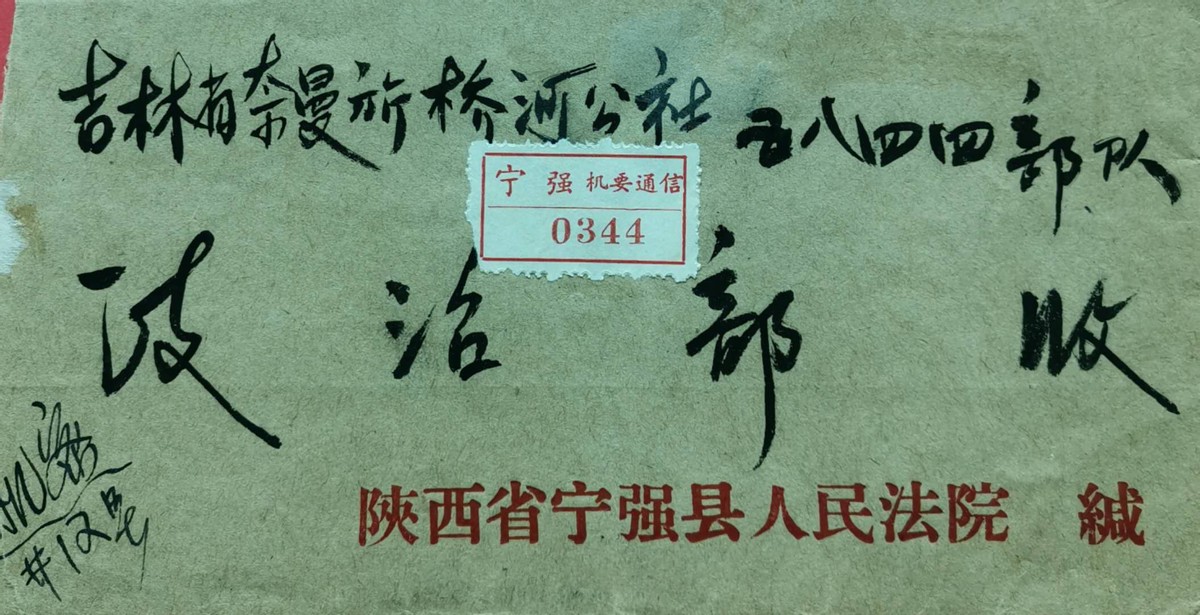 吉林省奈曼旂桥河公社 五八四四部队
宁强 机要通信
0344
政治部收
陕西省宁强县人民法院 缄